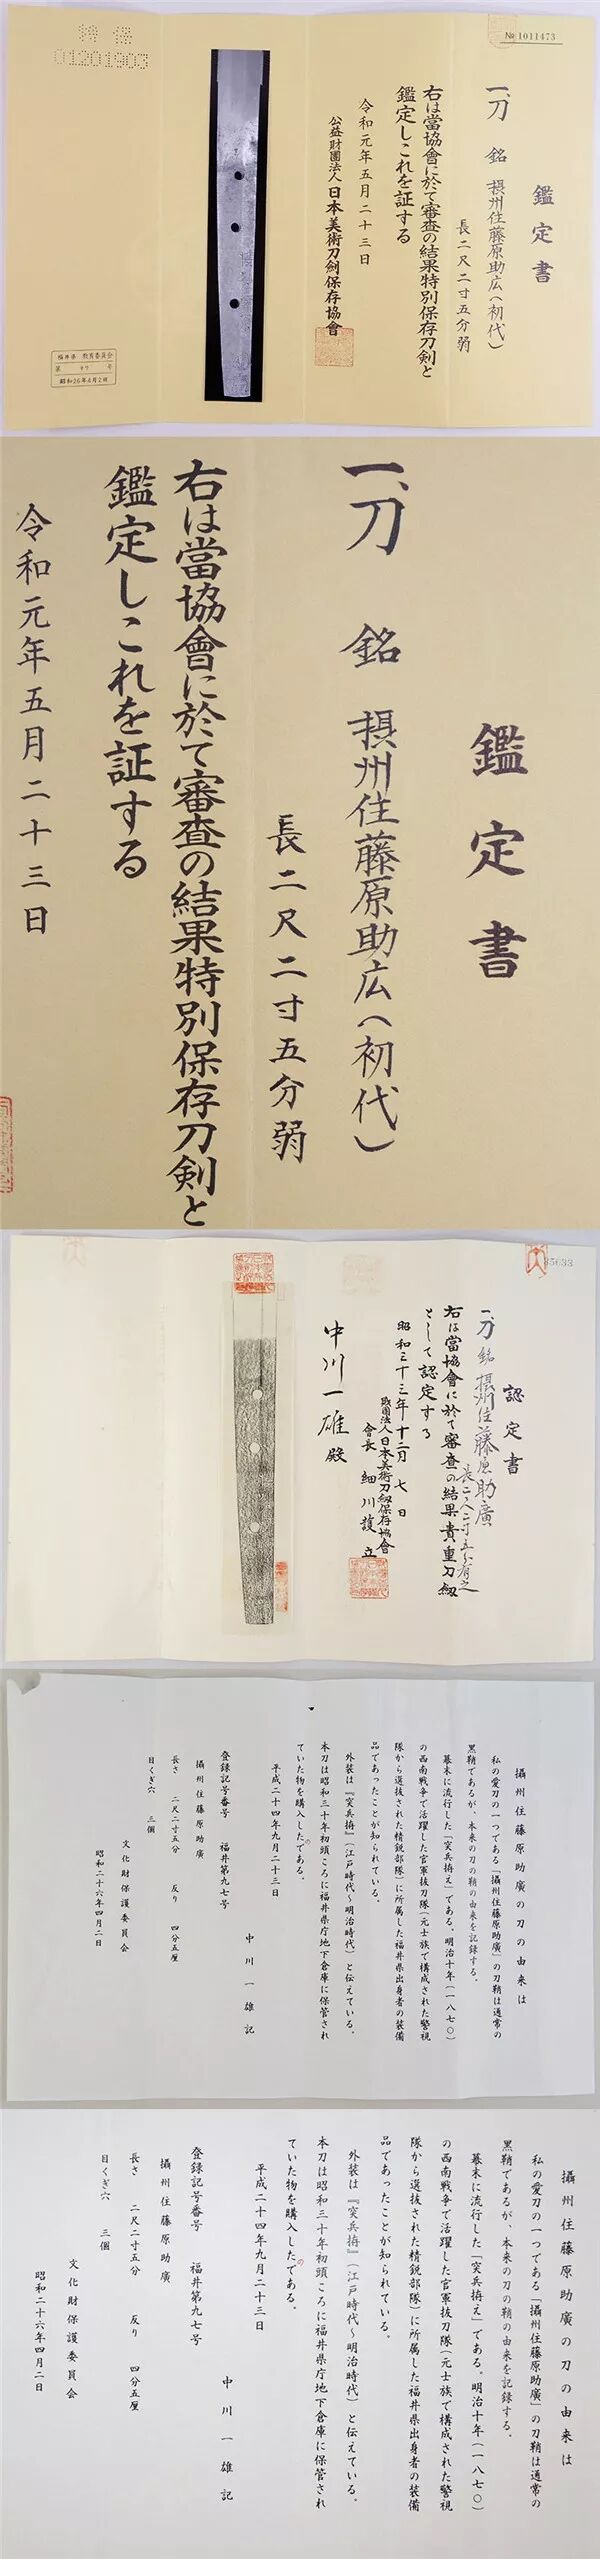 № 1011473
鑑定書
一、刀 銘 摂州住藤原助広(初代)
長二尺二寸五分弱
右は當協會に於て審査の結果特別保存刀剣と
鑑定しこれを証する
令和元年五月二十三日
公益財團法人日本美術刀劍保存協會
特保
01201903
福井県 教育委員会
第 97 号
昭和26年4月2日
鑑定書
一、刀 銘 摂州住藤原助広(初代)
長二尺二寸五分弱
右は當協會に於て審査の結果特別保存刀剣と
鑑定しこれを証する
令和元年五月二十三日
認定書
一、刀 銘 摂州住藤原助廣
長二尺二寸五分有之
右は當協會に於て審査の結果貴重刀劔
として認定する
昭和三十三年十二月七日
財團法人日本美術刀劔保存協會
會長 細川護立
中川一雄殿
攝州住藤原助廣の刀の由来は
私の愛刀の一つである「攝州住藤原助廣」の刀鞘は通常の
黒鞘であるが、本来の刀の鞘の由来を記録する。
幕末に流行した「突兵拵え」である。明治十年(一八七〇)
の西南戦争で活躍した官軍抜刀隊(元士族で構成された警視
隊から選抜された精鋭部隊)に所属した福井県出身者の装備
品であったことが知られている。
外装は『突兵拵』(江戸時代~明治時代)と伝えている。
本刀は昭和三十年初頭ころに福井県庁地下倉庫に保管され
ていた物を購入したのである。
平成二十四年九月二十三日
中川一雄記
登録記号番号 福井第九七号
攝州住藤原助廣
長さ 二尺二寸五分 反り 四分五厘
目くぎ穴 三個
文化財保護委員会
昭和二十六年四月二日
攝州住藤原助廣の刀の由来は
私の愛刀の一つである「攝州住藤原助廣」の刀鞘は通常の
黒鞘であるが、本来の刀の鞘の由来を記録する。
幕末に流行した「突兵拵え」である。明治十年(一八七〇)
の西南戦争で活躍した官軍抜刀隊(元士族で構成された警視
隊から選抜された精鋭部隊)に所属した福井県出身者の装備
品であったことが知られている。
外装は『突兵拵』(江戸時代~明治時代)と伝えている。
本刀は昭和三十年初頭ころに福井県庁地下倉庫に保管され
ていた物を購入したのである。
平成二十四年九月二十三日
中川一雄記
登録記号番号 福井第九七号
攝州住藤原助廣
長さ 二尺二寸五分 反り 四分五厘
目くぎ穴 三個
文化財保護委員会
昭和二十六年四月二日